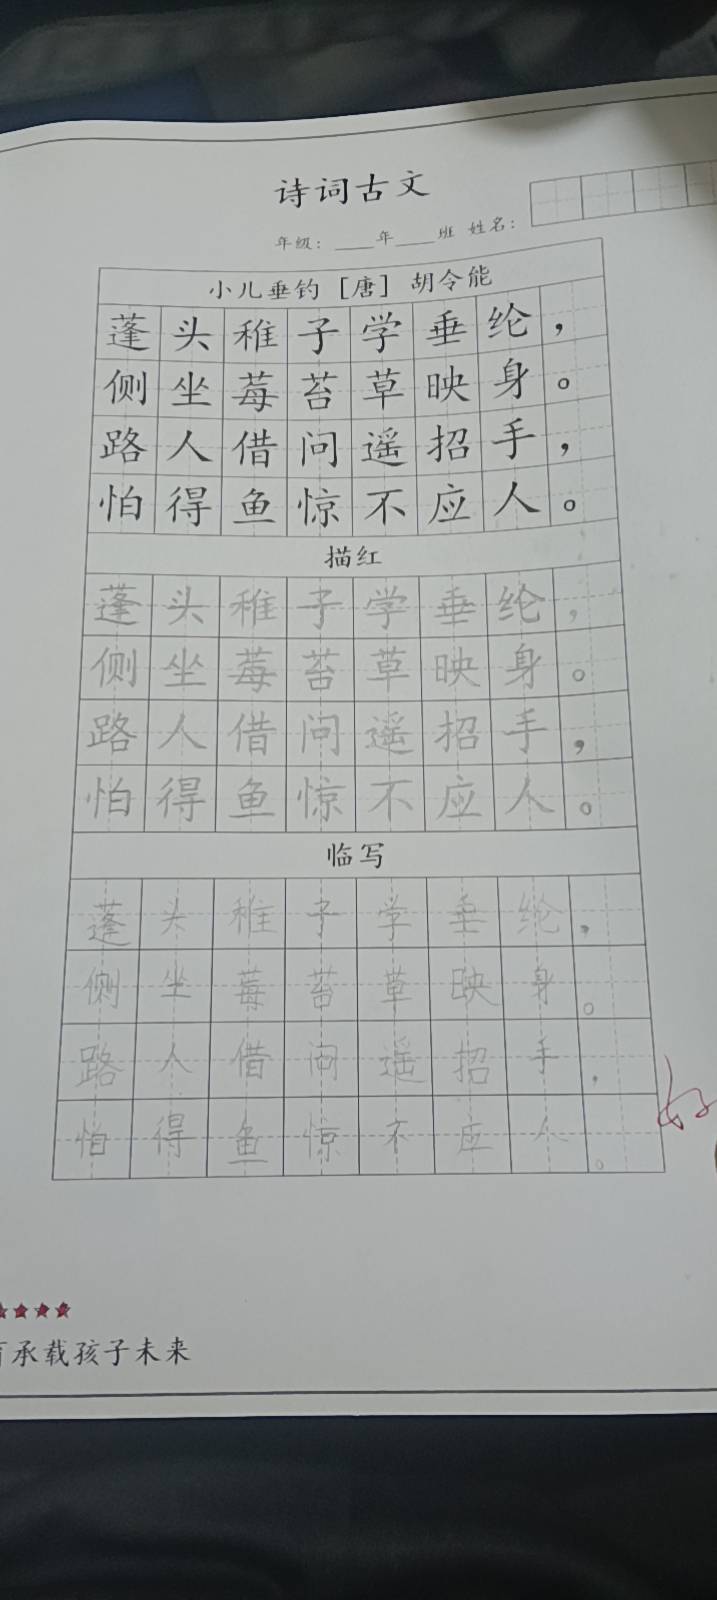 诗词古文
年级：____年____班 姓名：
小儿垂钓［唐］胡令能
蓬头稚子学垂纶，
侧坐莓苔草映身。
路人借问遥招手，
怕得鱼惊不应人。
描红
蓬头稚子学垂纶，
侧坐莓苔草映身。
路人借问遥招手，
怕得鱼惊不应人。
临写
蓬头稚子学垂纶，
侧坐莓苔草映身。
路人借问遥招手，
怕得鱼惊不应人。
承载孩子未来